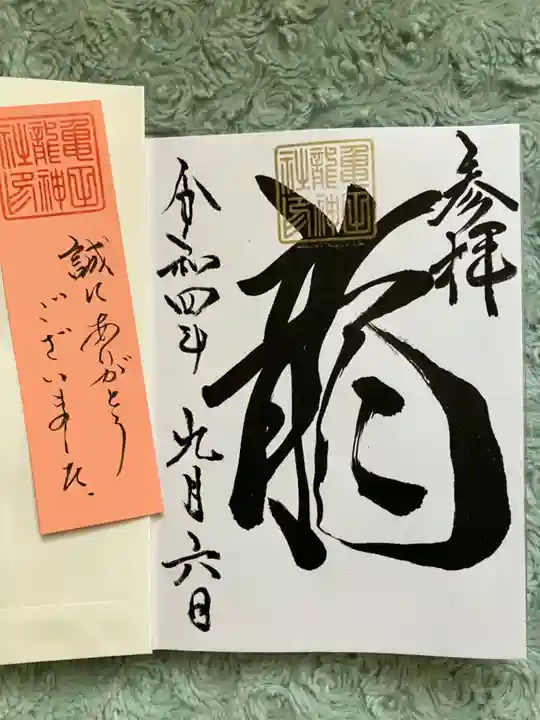 参拝
龍
亀正
龍神
社印
令和四年 九月六日
亀正
龍神
社印
誠にありがとう
ございました.